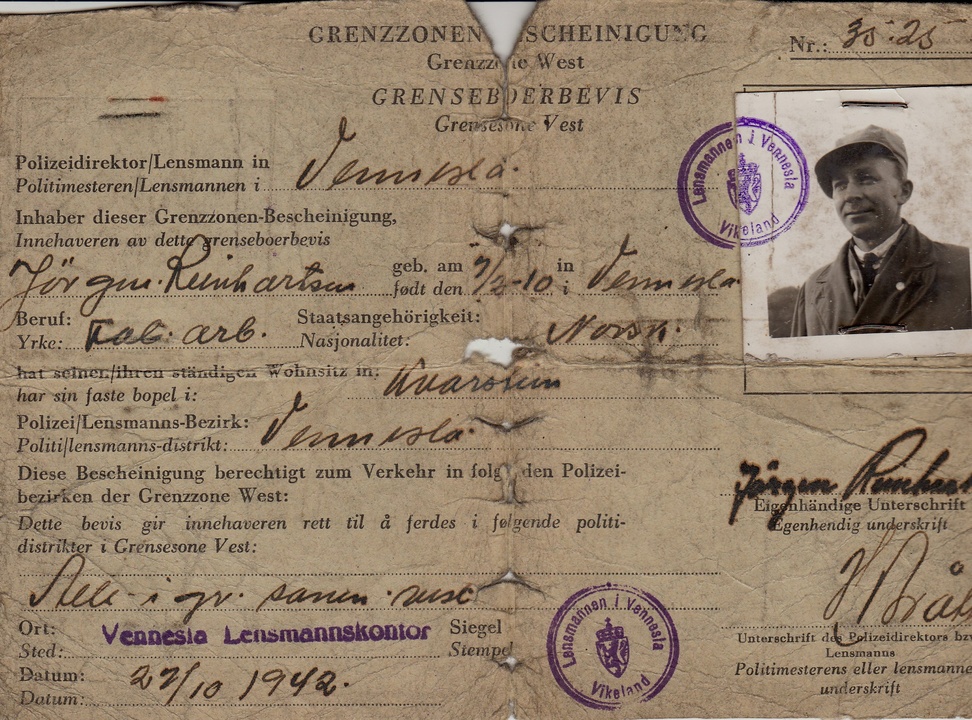 GRENZZONEN SCHEINIGUNG
Nr.: 35-25
Grenzzone West
GRENSEBOERBEVIS
Grensesone Vest
Polizeidirektor/Lensmann in
Politimesteren/Lensmannen i Vennesla.
Lensmannen i Vennesla
Vikeland
Inhaber dieser Grenzzonen-Bescheinigung,
Innehaveren av dette grenseboerbevis
Jörgen Reinhartsen geb. am 7/2-10 in Vennesla
født den i
Beruf: Fab. arb. Staatsangehörigkeit: Norsk.
Yrke: Nasjonalitet:
hat seinen/ihren ständigen Wohnsitz in: Kvarstein
har sin faste bopel i:
Polizei/Lensmanns-Bezirk: Vennesla.
Politi/lensmanns-distrikt:
Diese Bescheinigung berechtigt zum Verkehr in folg den Polizei-
bezirken der Grenzzone West:
Dette bevis gir innehaveren rett til å ferdes i følgende politi-
distrikter i Grensesone Vest:
Jörgen
Eigenhändige Unterschrift
Egenhendig underskrift
i gr. sonen
Ort: Vennesla Lensmannskontor Siegel
Sted: Stempel
Lensmannen i Vennesla
Vikeland
Datum: 27/10 1942.
Datum:
Unterschrift des Polizeidirektors bzw
Lensmanns
Politimesterens eller lensmanne
underskrift